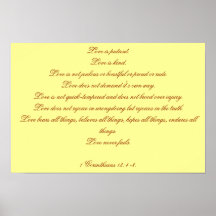 Love is patient.
Love is kind.
Love is not jealous or boastful or proud or rude.
Love does not demand it's own way.
Love is not quick-tempered and does not brood over injury.
Love does not rejoice in wrongdoing but rejoices in the truth.
Love bears all things, believes all things, hopes all things, endures all
things.
Love never fails.
1 Corinthians 13, 4-8.